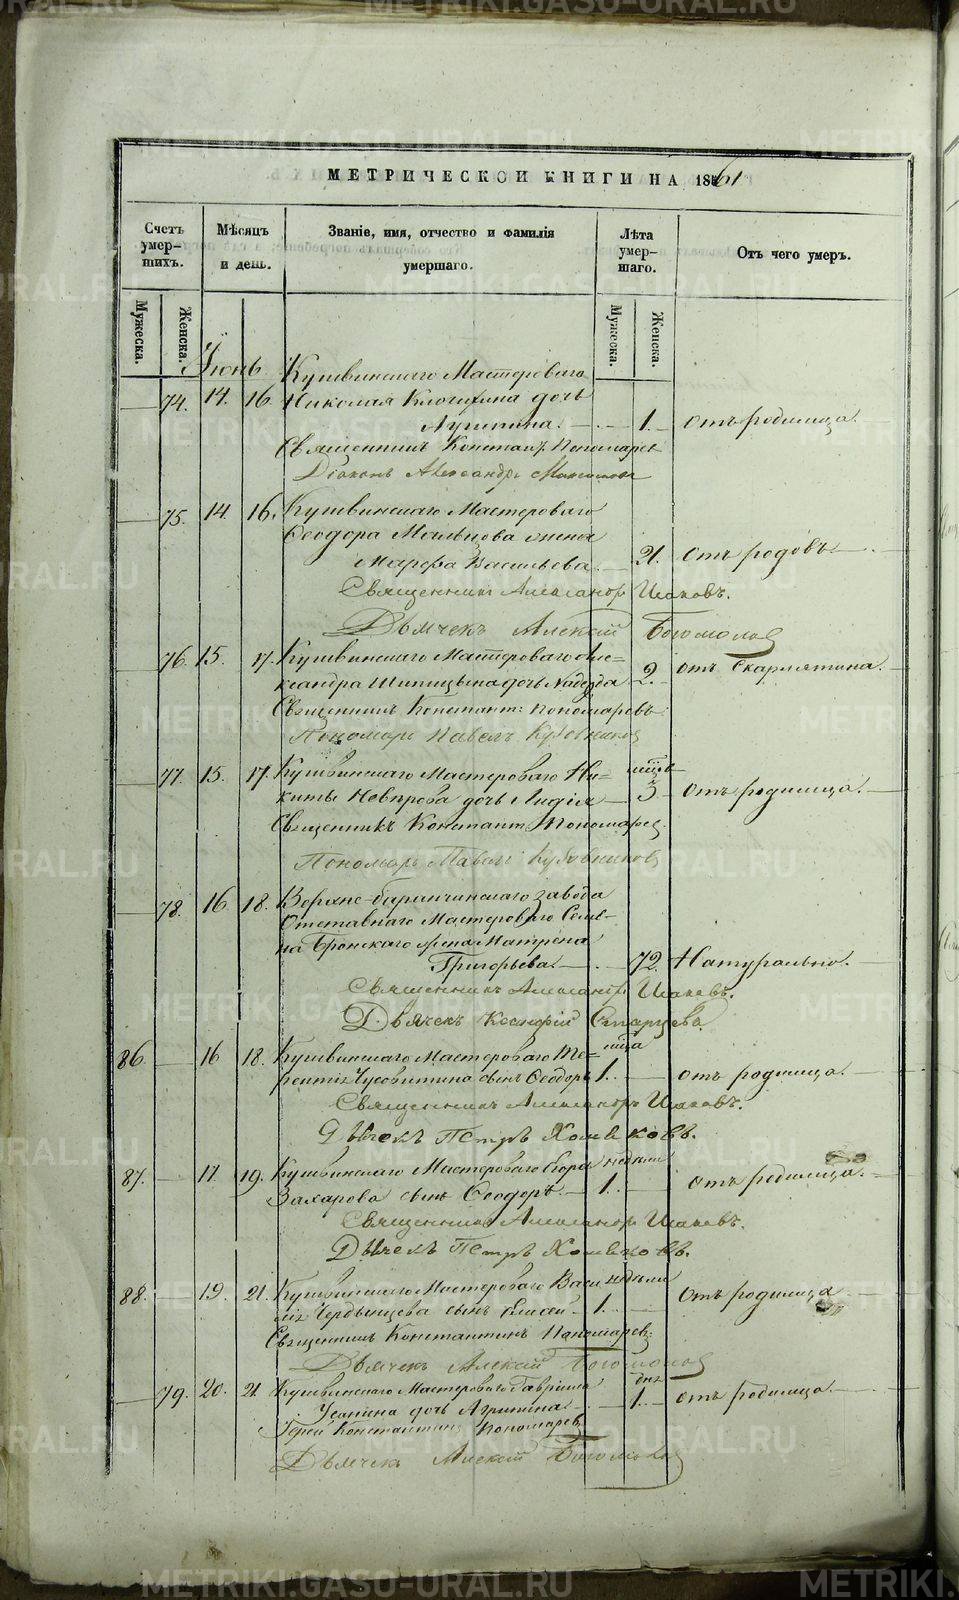 МЕТРИЧЕСКОЙ КНИГИ НА 1861
Счетъ умер-шихъ.
Мѣсяцъ и день.
Званіе, имя, отчество и фамилія умершаго.
Лѣта умер-шаго.
Отъ чего умеръ.
Мужеска.
Женска.
Мужеска.
Женска.
Іюнь
Кушвинскаго Мастероваго
74. 14. 16. Николая дочь
1. отъ родимца.
Священникъ Констан: Пономаревъ
Діаконъ Александръ
75. 14. 16. Кушвинскаго Мастероваго
Ѳеодора Мальцова жена
Марфа Васильева. 21. отъ родовъ
Священникъ Александръ Исаковъ.
Дьячекъ Алексій Богомолов
76. 15. 17. Кушвинскаго Мастероваго Але-
ксандра Шипицына дочь Надежда 2. отъ Скарлятина.
Священникъ Констант: Пономаревъ
Пономарь Павелъ
77. 15. 17. Кушвинскаго Мастероваго Ни-
киты дочь Лидія 3 отъ родимца.
Священникъ Констант: Пономарев
Пономарь Павелъ
78. 16. 18. Верхне-баранчинскаго завода
Отставнаго Мастероваго Семе-
на жена Матрена
Григорьева. 72. Натурально.
Священникъ Александръ Исаковъ.
Дьячекъ Ксенофій Старцевъ
86. 16 18. Кушвинскаго Мастероваго Те-
рентія Чусовитина сынъ Ѳеодоръ 1. отъ родимца.
Священникъ Александръ Исаковъ.
Дьячекъ Петръ Хомяковъ.
87. 17 19. Кушвинскаго Мастероваго Егора недѣли
Захарова сынъ Ѳеодоръ 1. отъ родимца.
Священникъ Александръ Исаковъ.
Дьячекъ Петръ Хомяковъ.
88. 19. 21. Кушвинскаго Мастероваго Васи недѣли
лія Чердынцева сынъ Елисей 1. Отъ родимца
Священникъ Константинъ Пономаревъ
Дьячекъ Алексій Богомолов
79. 20. 21 Кушвинскаго Мастероваго Гавріила дня
дочь Агрипина. 1. отъ родимца.
Іерей Константинъ Пономаревъ
Дьячекъ Алексій Богомолов
METRIKI.GASO-URAL.RU